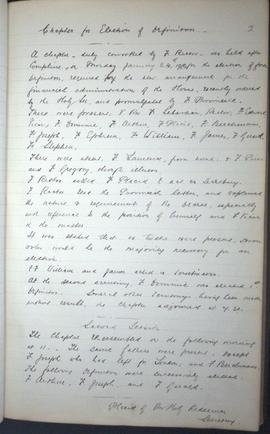 Chapter for Election of Definitors.
A chapter, duly convoked by F. Rector, was held after
Compline, on Monday January 24th, for the election of four
definitors, required by the new arrangement for the
financial administration of the House, recently ordered
by the Holy See, and promulgated by F. Provincial.
There were present: V. Rev. F. Sebastian, Rector,
Pius, F. Dominic, F. F.
F. Joseph, F. Ephrem, F. William, F. James, F. Gerald,
F. Stephen.
There were absent: F. Laurence, from home,
and F. Gregory, through illness.
F. Rector asked F. to act as Secretary.
F. Rector read the Provincial's letter, and explained
the nature & requirements of the decree, especially
with reference to the position of himself and V. Rector
in the matter.
It was stated that as twelve were present, seven
votes would be the majority necessary for an
election.
F.F. William and James acted as Scrutineers.
At the second scrutiny, F. Dominic was elected 1st
Definitor. Several other scrutinys having been made
without result, the Chapter adjourned at 9.20.
Second Session
The Chapter reassembled on the following morning
at 11. The same fathers were present, except
F. Joseph who had left for London, and
The following definitors were canonically elected:
F. Arthur, F. Joseph, and F. Gerald.
of Our Holy Redeemer
Secretary